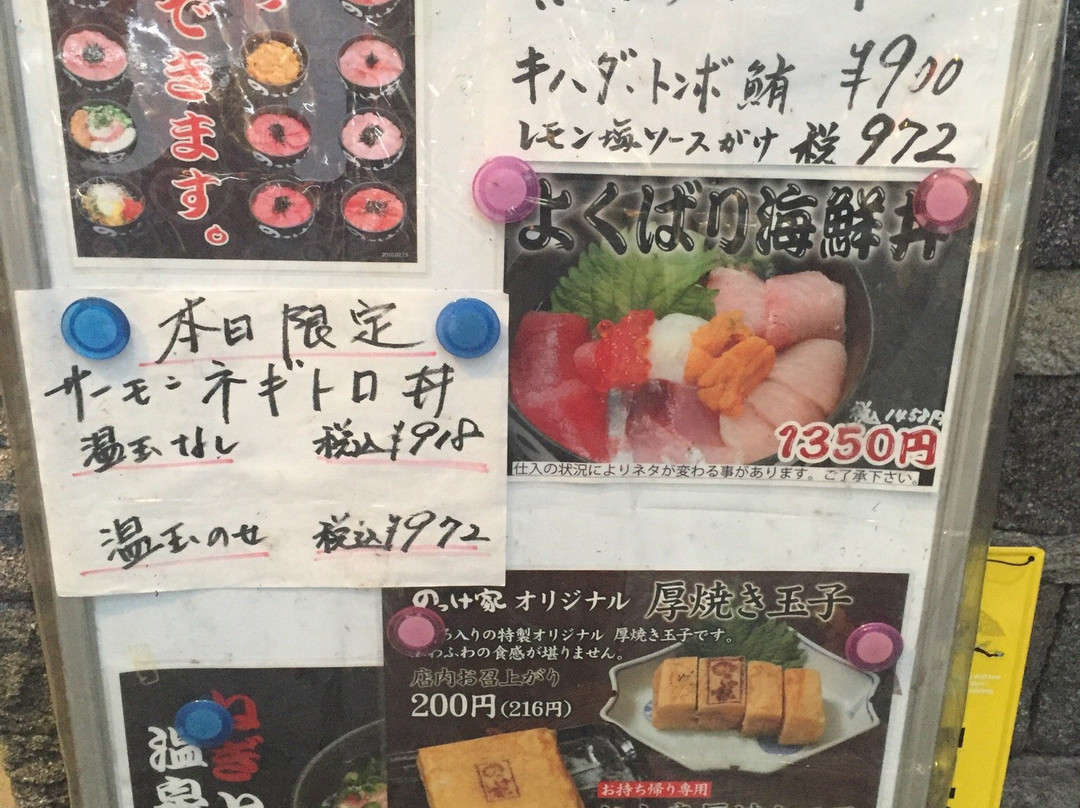 できます。
キハダ、トンボ鮪 ¥900
レモン塩ソースがけ 税 972
よくばり海鮮丼
税込1458円
1350円
仕入の状況によりネタが変わる事があります。ご了承下さい。
本日限定
サーモンネギトロ丼
温玉なし 税込¥918
温玉のせ 税込¥972
のっけ家 オリジナル 厚焼き玉子
入りの特製オリジナル 厚焼き玉子です。
わふわの食感が堪りません。
店内お召上がり
200円(216円)
お持ち帰り専用
ねぎ
温泉